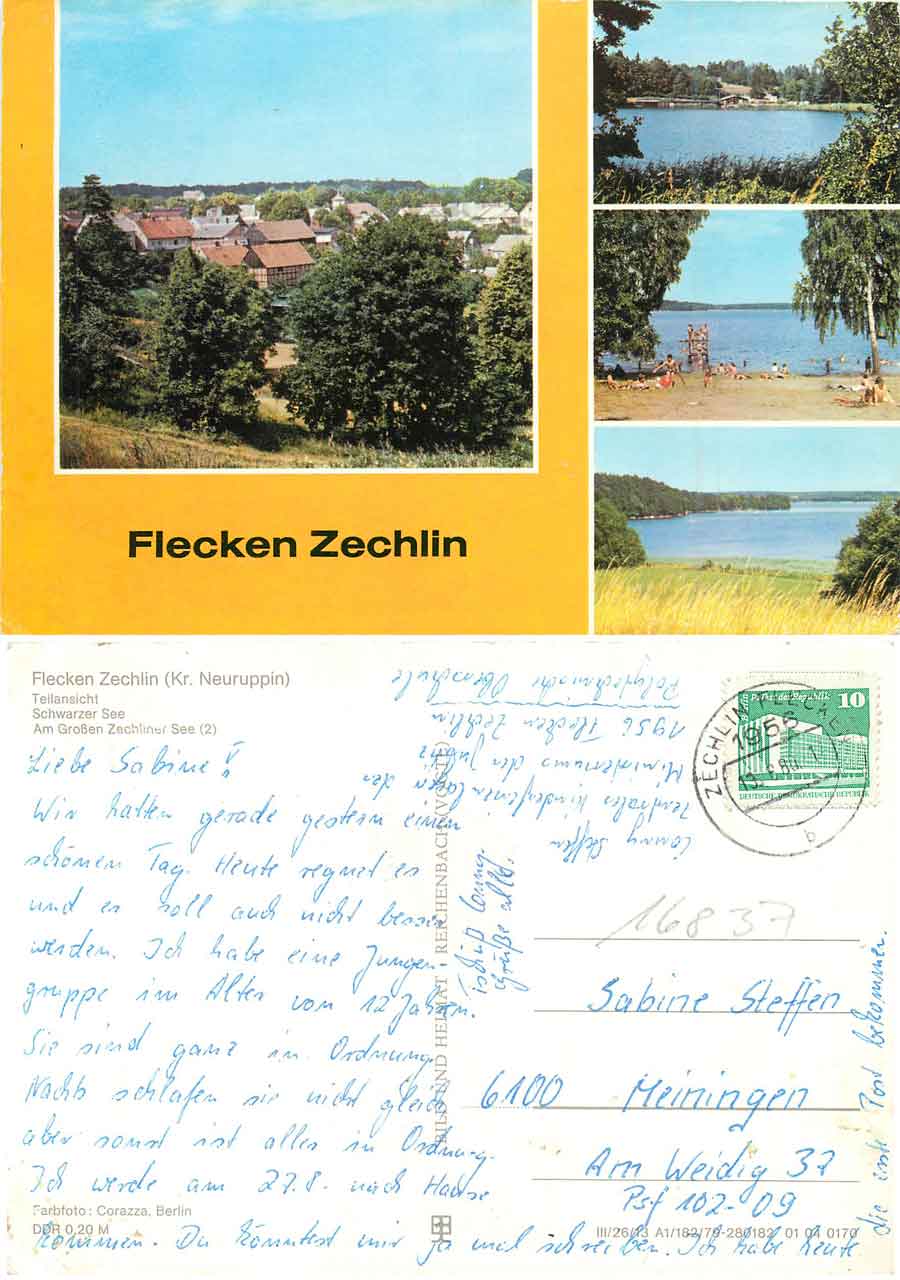 Flecken Zechlin
Flecken Zechlin (Kr. Neuruppin)
Teilansicht
Schwarzer See
Am Großen Zechliner See (2)
Liebe Sabine!
Wir hatten gerade gestern einen
schönen Tag. Heute regnet es
und es soll auch nicht besser
werden. Ich habe eine Jungen-
gruppe im Alter von 12 Jahren.
Sie sind ganz in Ordnung.
Nachts schlafen sie nicht gleich
aber sonst ist alles in Ordnung.
Ich werde am 27.8. nach Hause
kommen. Du könntest mir ja mal schreiben. Ich habe heute
die erste Post bekommen.
Tschüß Conny.
Grüße alle,
Conny Steffen
Zentrales Kinderferienlager der
Ministeriums der Justiz
1956 Flecken Zechlin
Polytechnische Oberschule
BILD UND HEIMAT · REICHENBACH (VOGTL)
P. Palast der Republik 10
DEUTSCHE DEMOKRATISCHE REPUBLIK
ZECHLIN, FLECKEN
1956
b
16837
Sabine Steffen
6100 Meiningen
Am Weidig 37
Psf 102-09
Farbfoto: Corazza, Berlin
DDR 0,20 M
III/26/13 A1/182/79-280182 01 04 0170